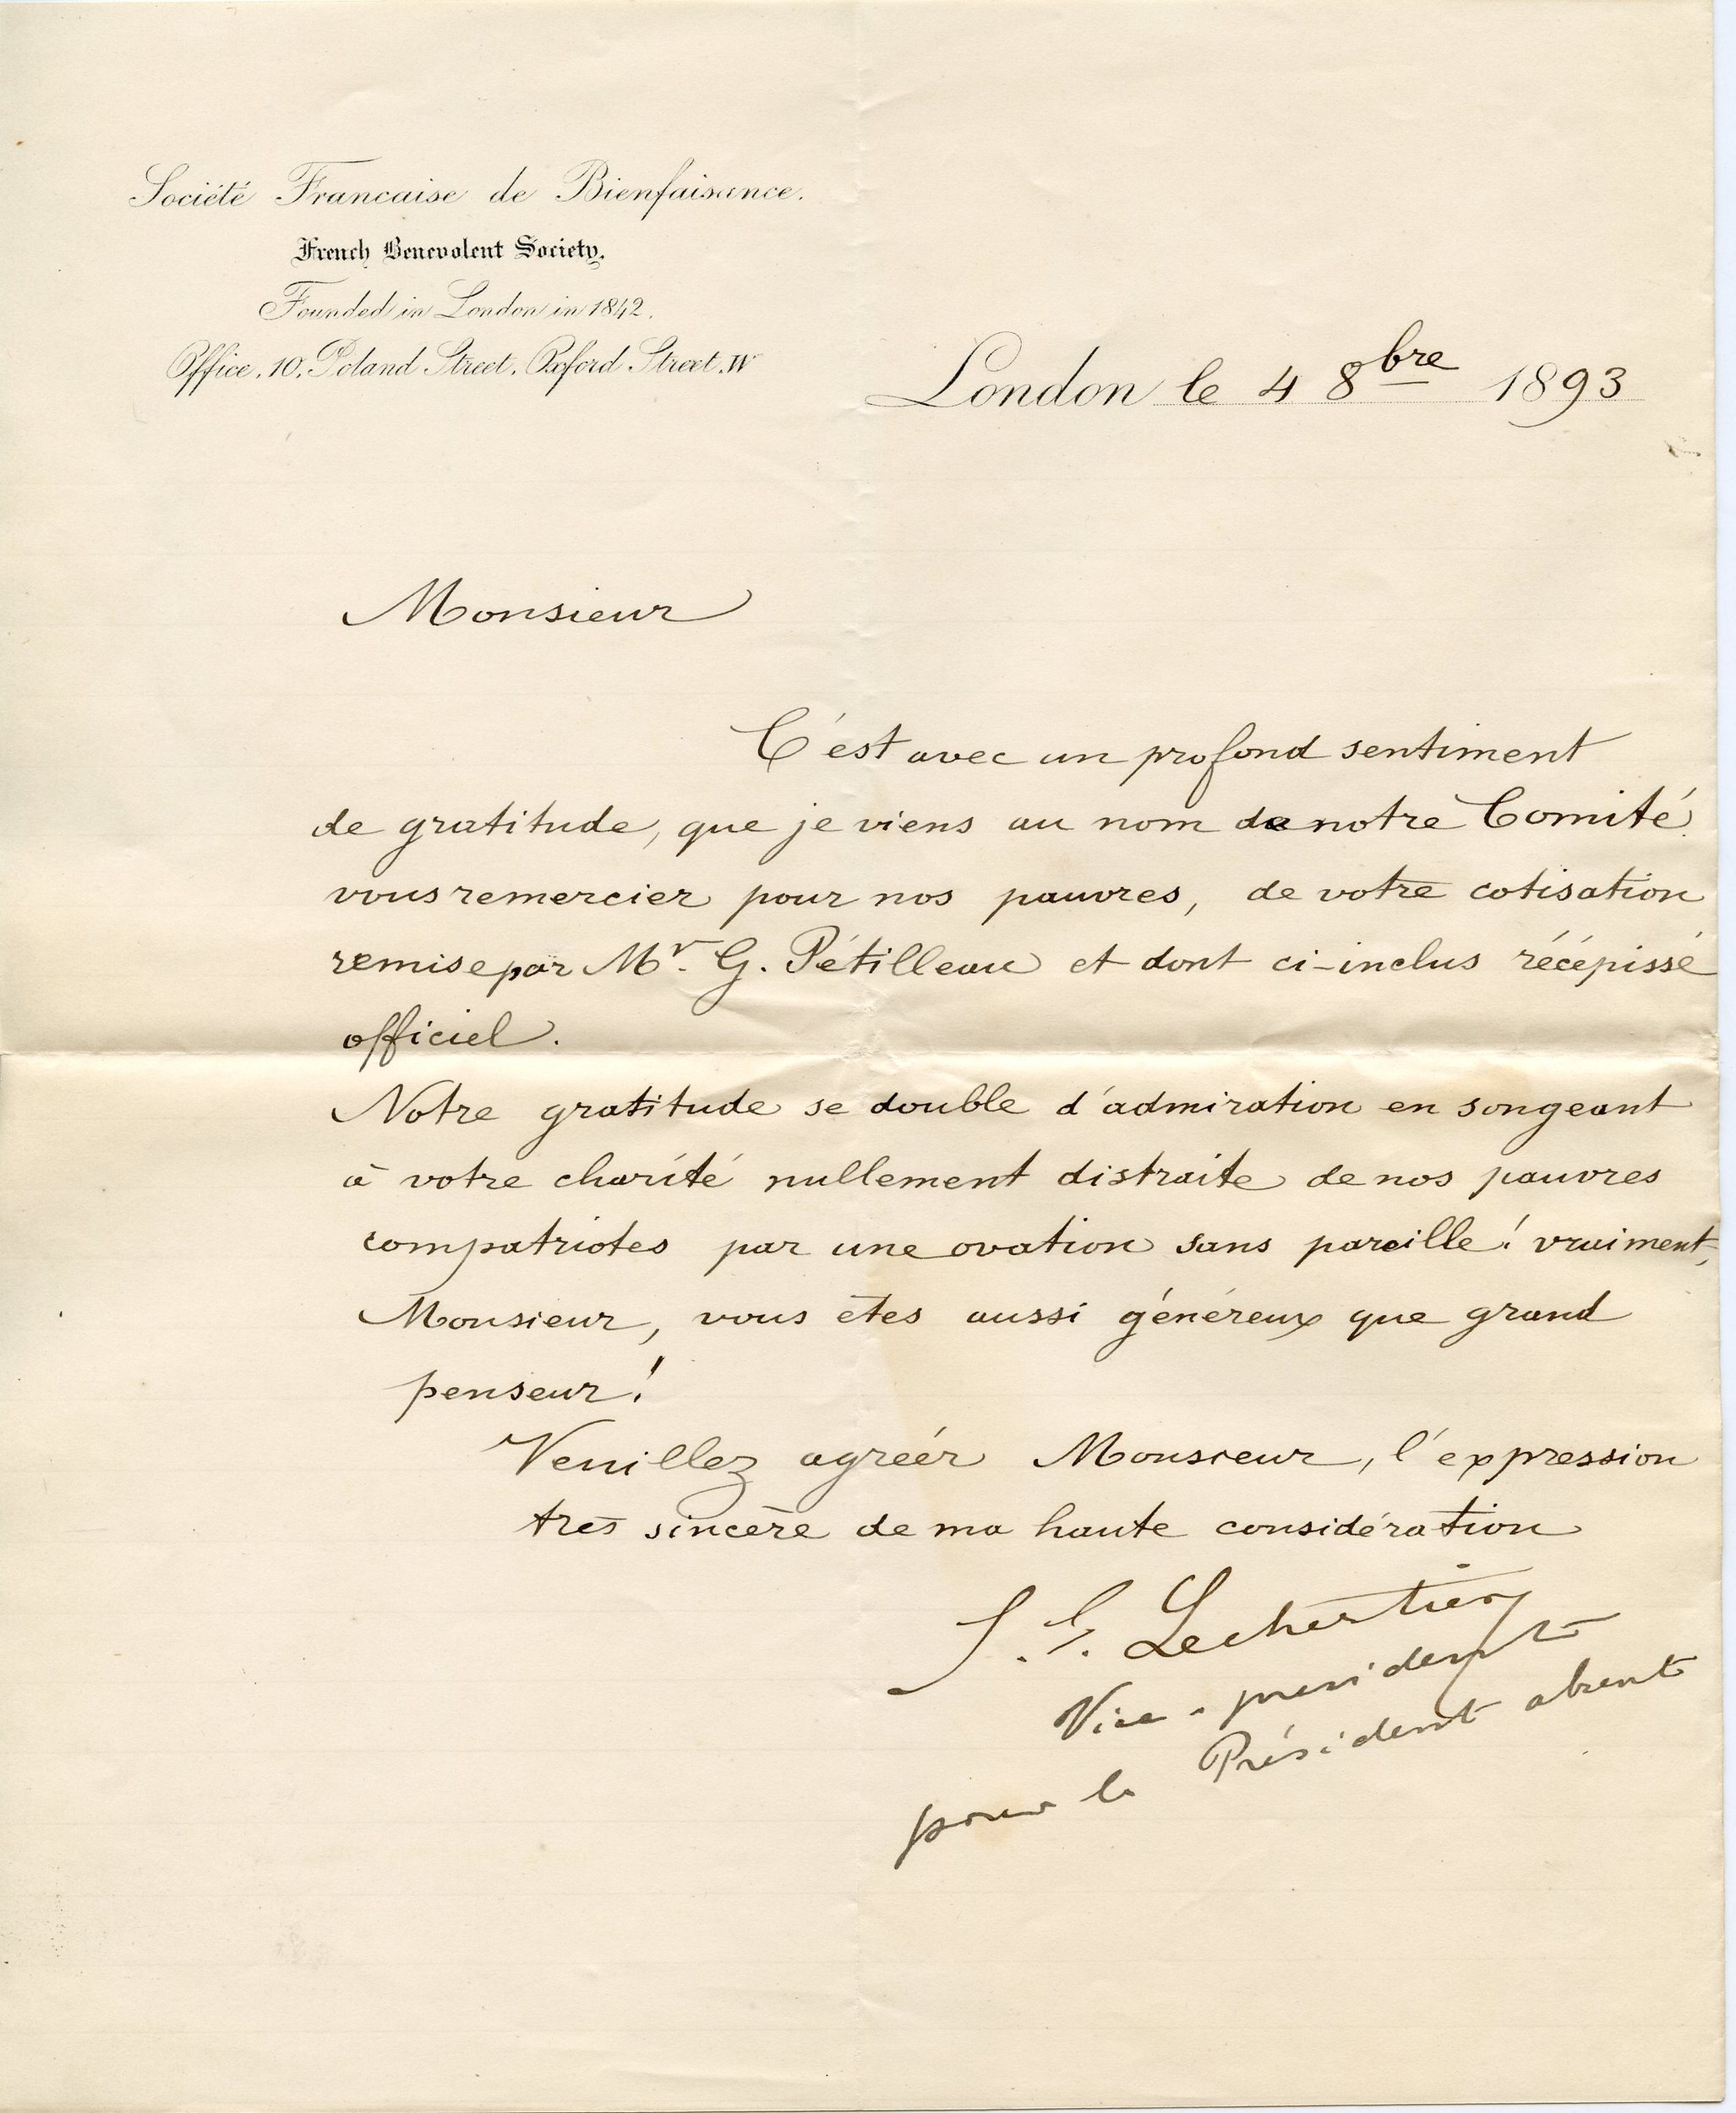 Société Francaise de Bienfaisance.
French Benevolent Society.
Founded in London in 1842.
Office. 10. Poland Street. Oxford Street. W
London le 4 8bre 1893
Monsieur
C'est avec un profond sentiment
de gratitude, que je viens au nom de notre Comité
vous remercier pour nos pauvres, de votre cotisation
remise par Mr. G. Pétilleau et dont ci-inclus récépissé
officiel.
Notre gratitude se double d'admiration en songeant
à votre charité nullement distraite de nos pauvres
compatriotes par une ovation sans pareille! vraiment,
Monsieur, vous êtes aussi généreux que grand
penseur!
Veuillez agréér Monsieur, l'expression
très sincère de ma haute considération
J. G. Lechertier
Vice-président
pour le Président absent